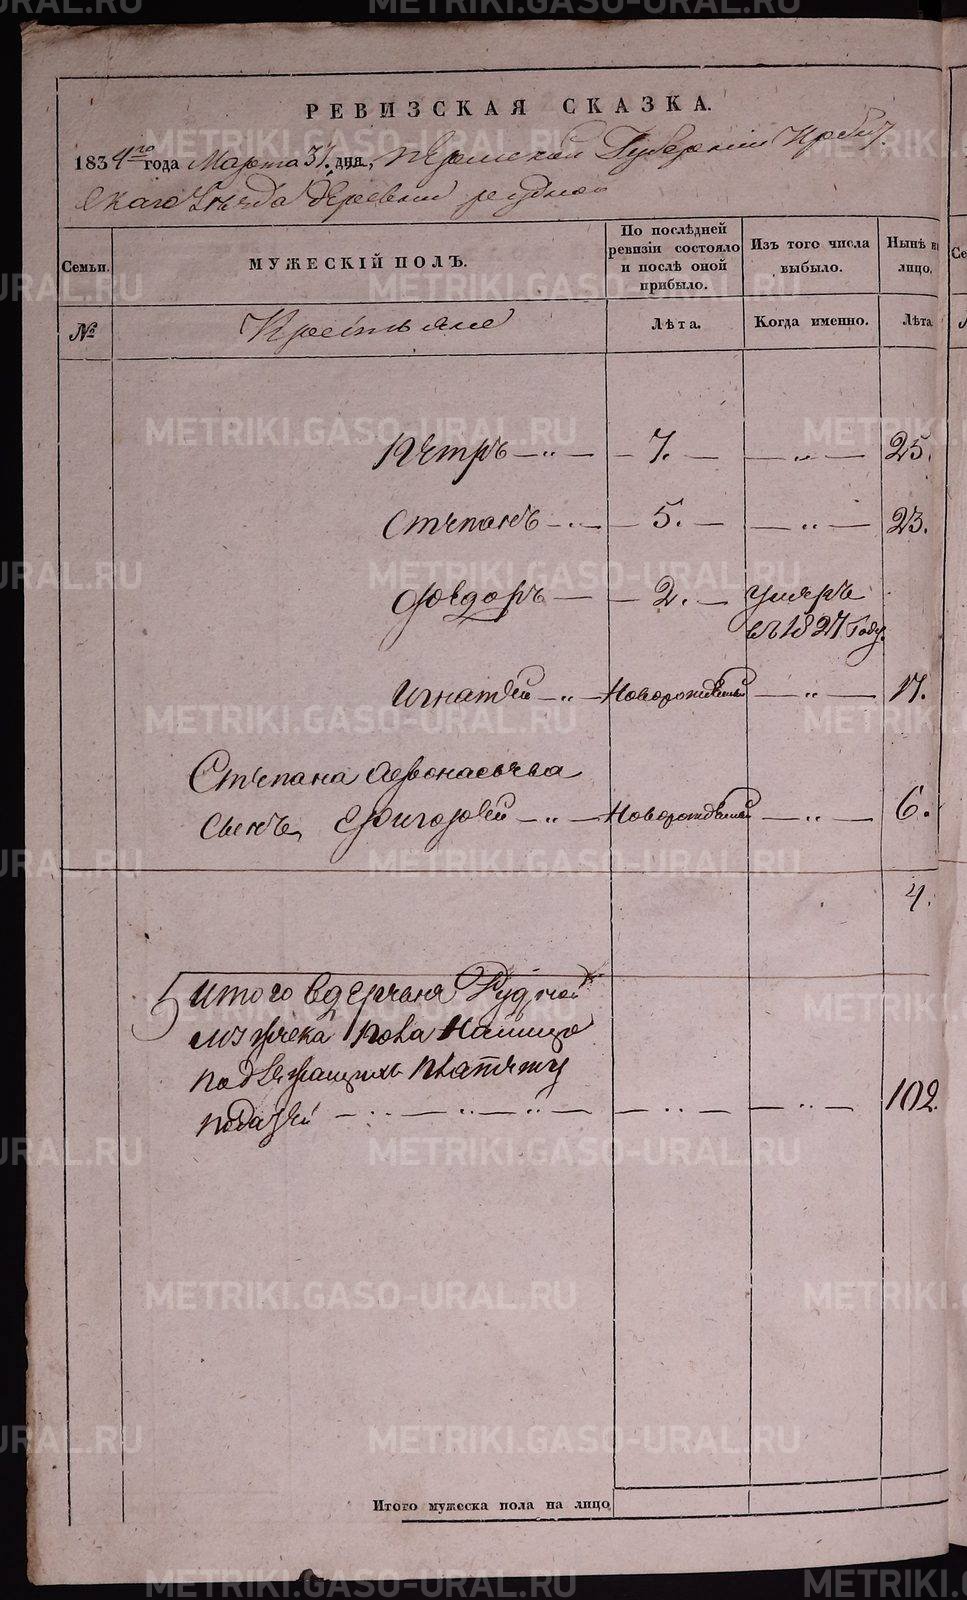 РЕВИЗСКАЯ СКАЗКА.
1834го года Марта 31. дня, Пермской Губернии Ирбит
скаго Уезда деревни рудной
Семьи.
МУЖЕСКІЙ ПОЛЪ.
По послѣдней ревизіи состояло и послѣ оной прибыло.
Изъ того числа выбыло.
Нынѣ на лицо,
№
Крестьяне
Лѣта.
Когда именно.
Лѣта
Петръ — „ — — 7. — — „ — 25.
Степанъ — „ — — 5. — — „ — 23.
Ѳедоръ — — 2. — умеръ
въ 1827 Году.
Игнатей — „ — Новорожденный — „ — 17.
Степана Афонасьева
сынъ Григорей — „ — Новорожденный — „ — 6.
4.
5 итого в деревня Рудной
мужека пола Налицо
подлежащихъ платежу
податей — „ — „ — „ — — „ — — „ — 102.
Итого мужеска пола на лицо
METRIKI.GASO-URAL.RU